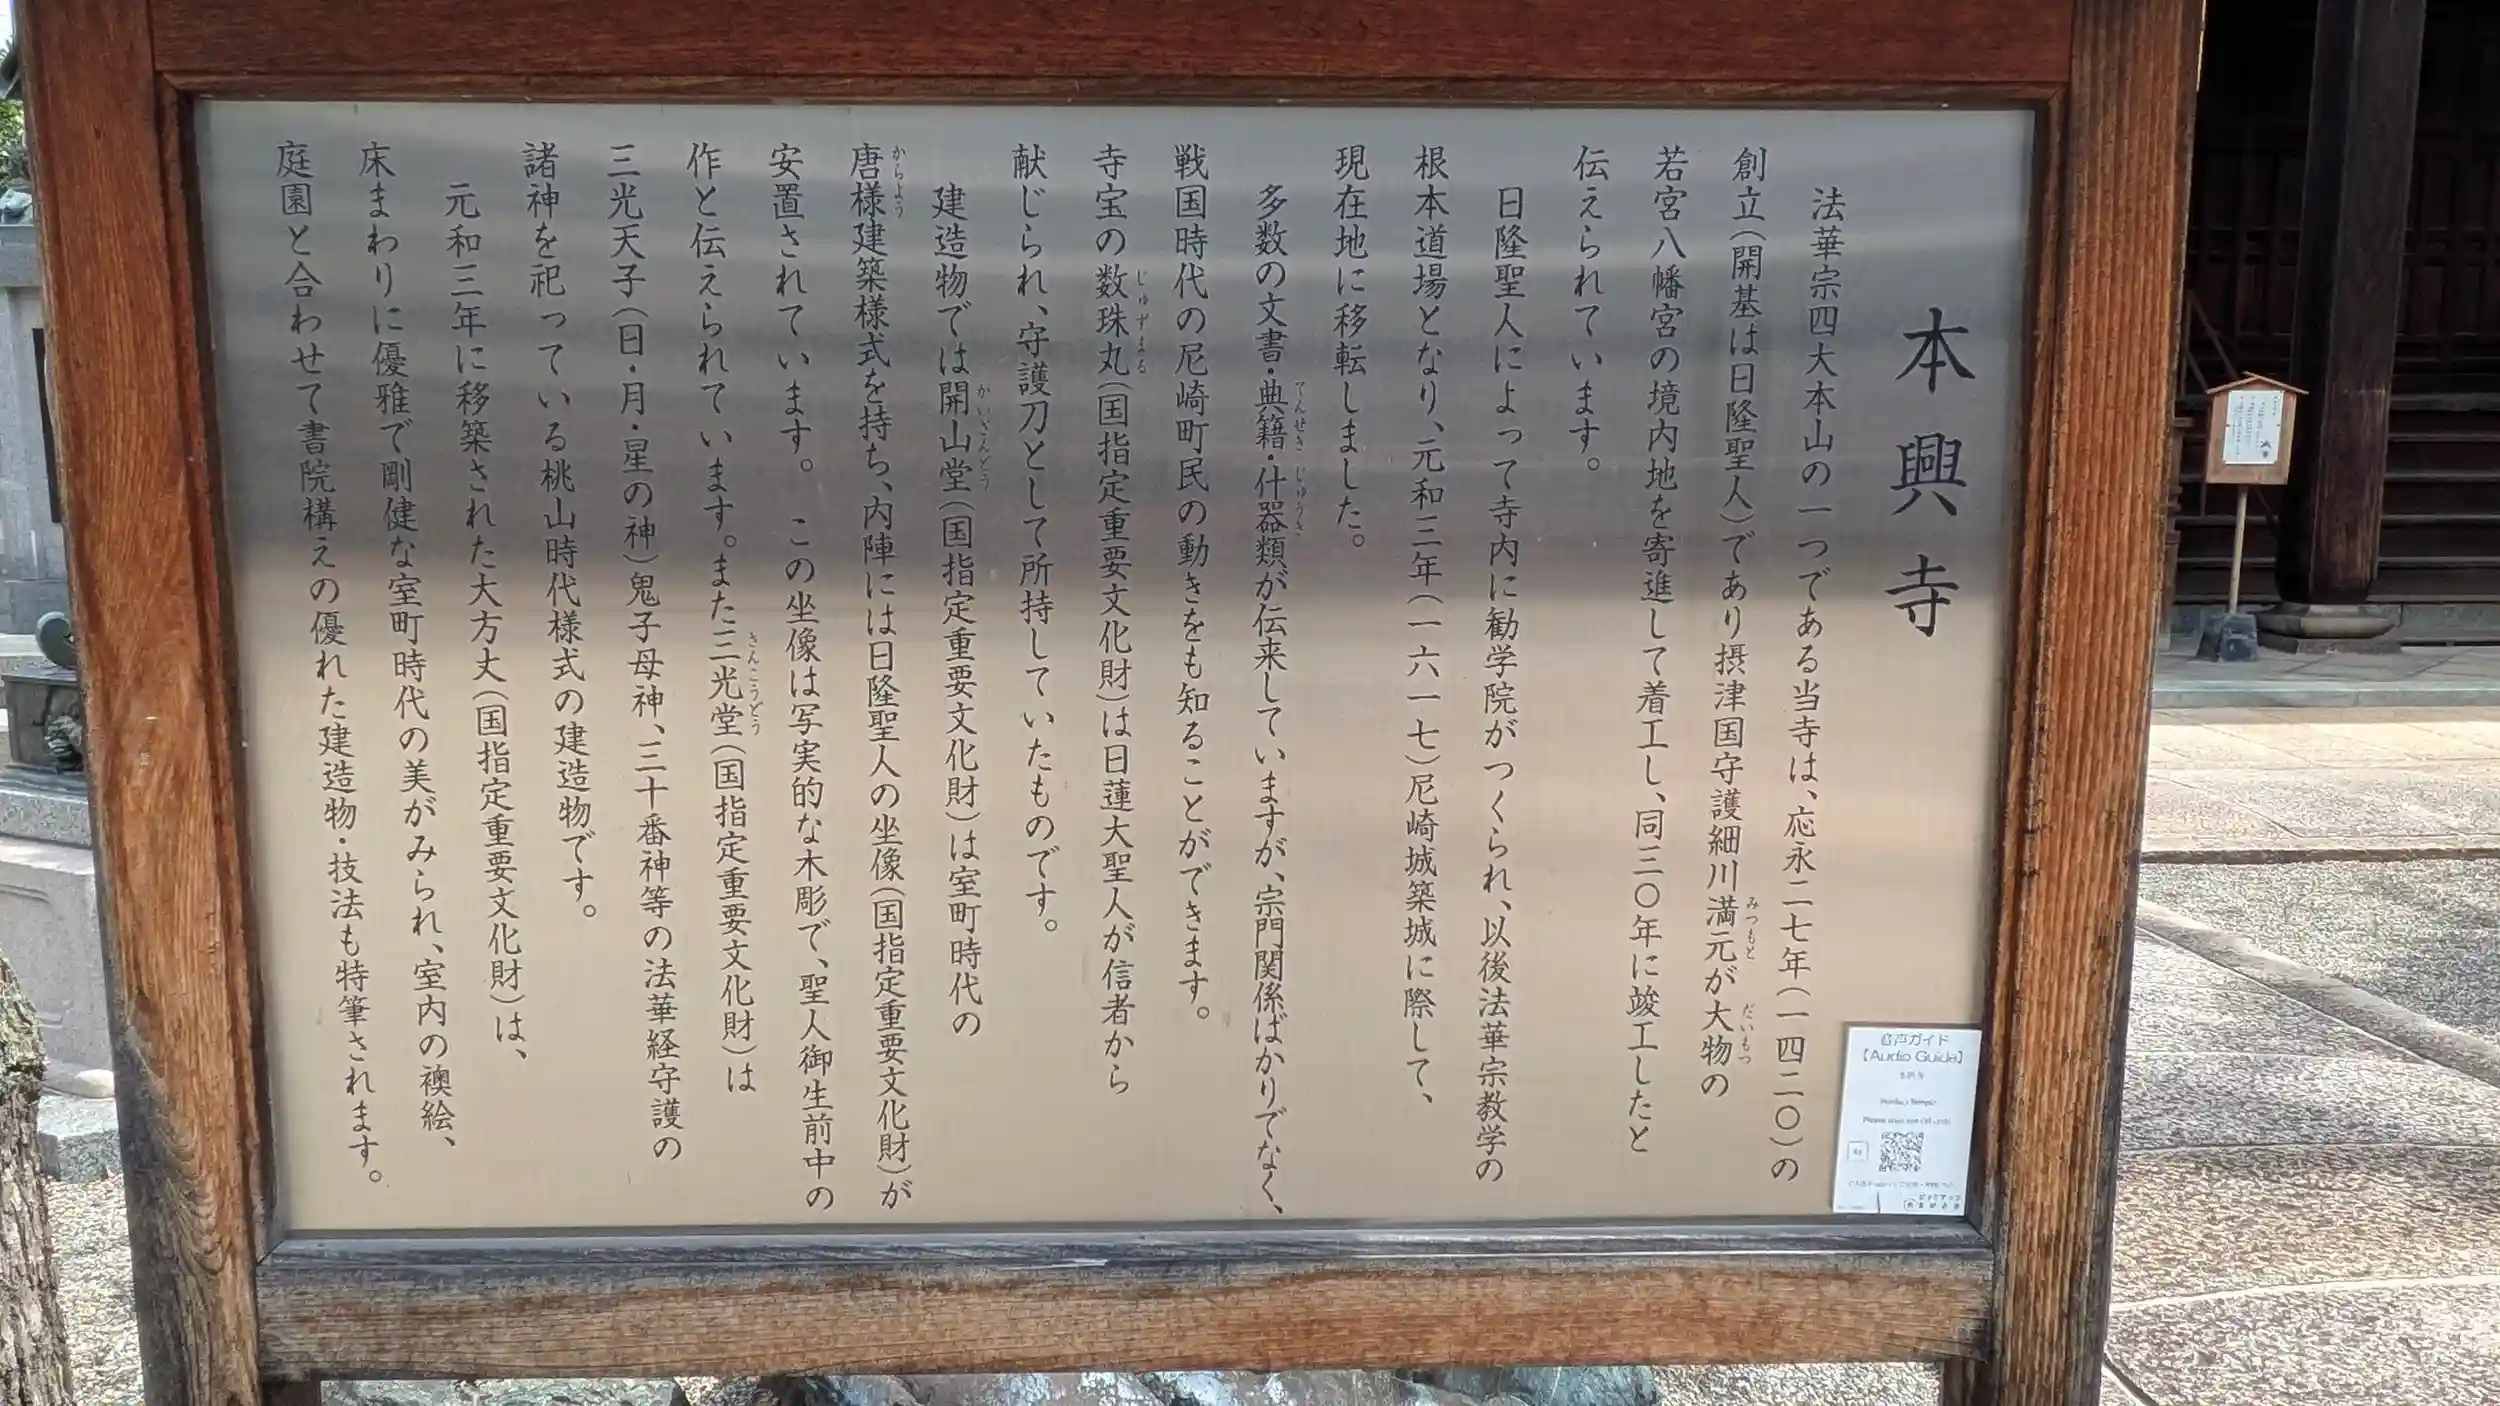 本興寺
法華宗四大本山の一つである当寺は、応永二七年(一四二〇)の
創立(開基は日隆聖人)であり摂津国守護細川満元が大物の
みつもと
だいもつ
若宮八幡宮の境内地を寄進して着工し、同三〇年に竣工したと
伝えられています。
日隆聖人によって寺内に勧学院がつくられ、以後法華宗教学の
根本道場となり、元和三年(一六一七)尼崎城築城に際して、
現在地に移転しました。
多数の文書・典籍・什器類が伝来していますが、宗門関係ばかりでなく、
てんせき
じゅうき
戦国時代の尼崎町民の動きをも知ることができます。
寺宝の数珠丸(国指定重要文化財)は日蓮大聖人が信者から
じゅずまる
献じられ、守護刀として所持していたものです。
建造物では開山堂(国指定重要文化財)は室町時代の
かいざんどう
唐様建築様式を持ち、内陣には日隆聖人の坐像(国指定重要文化財)が
からよう
安置されています。この坐像は写実的な木彫で、聖人御生前中の
作と伝えられています。また三光堂(国指定重要文化財)は
さんこうどう
三光天子(日・月・星の神)鬼子母神、三十番神等の法華経守護の
諸神を祀っている桃山時代様式の建造物です。
元和三年に移築された大方丈(国指定重要文化財)は、
床まわりに優雅で剛健な室町時代の美がみられ、室内の襖絵、
庭園と合わせて書院構えの優れた建造物・技法も特筆されます。
音声ガイド
【Audio Guide】
本興寺